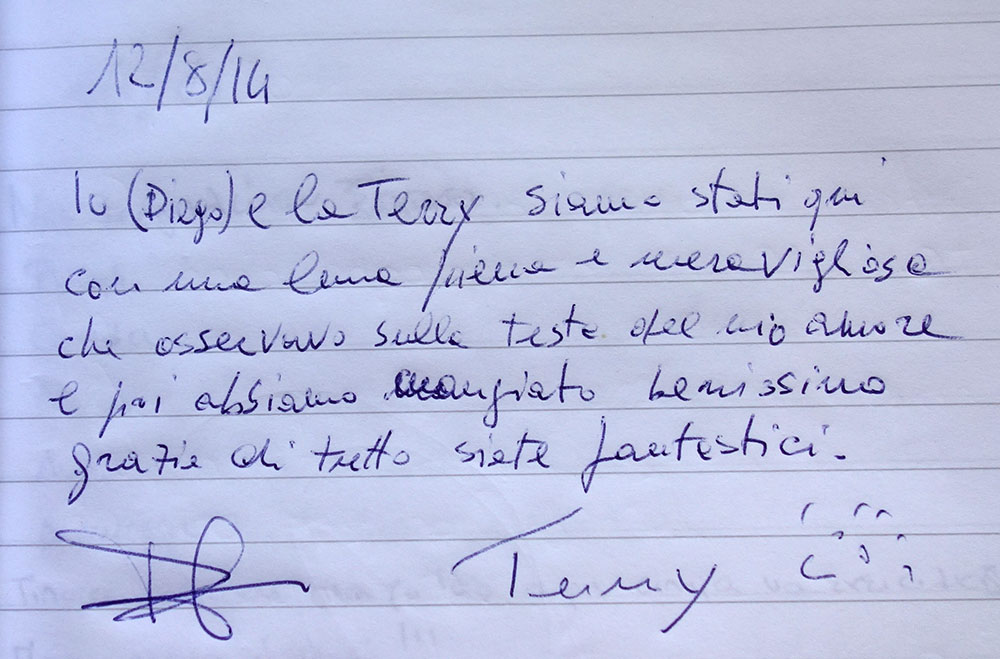 12/8/14
Io (Diego) e la Terry siamo stati qui
con una luna piena e meravigliosa
che osservavo sulla testa del mio amore
e poi abbiamo mangiato benissimo
grazie di tutto siete fantastici.
Terry